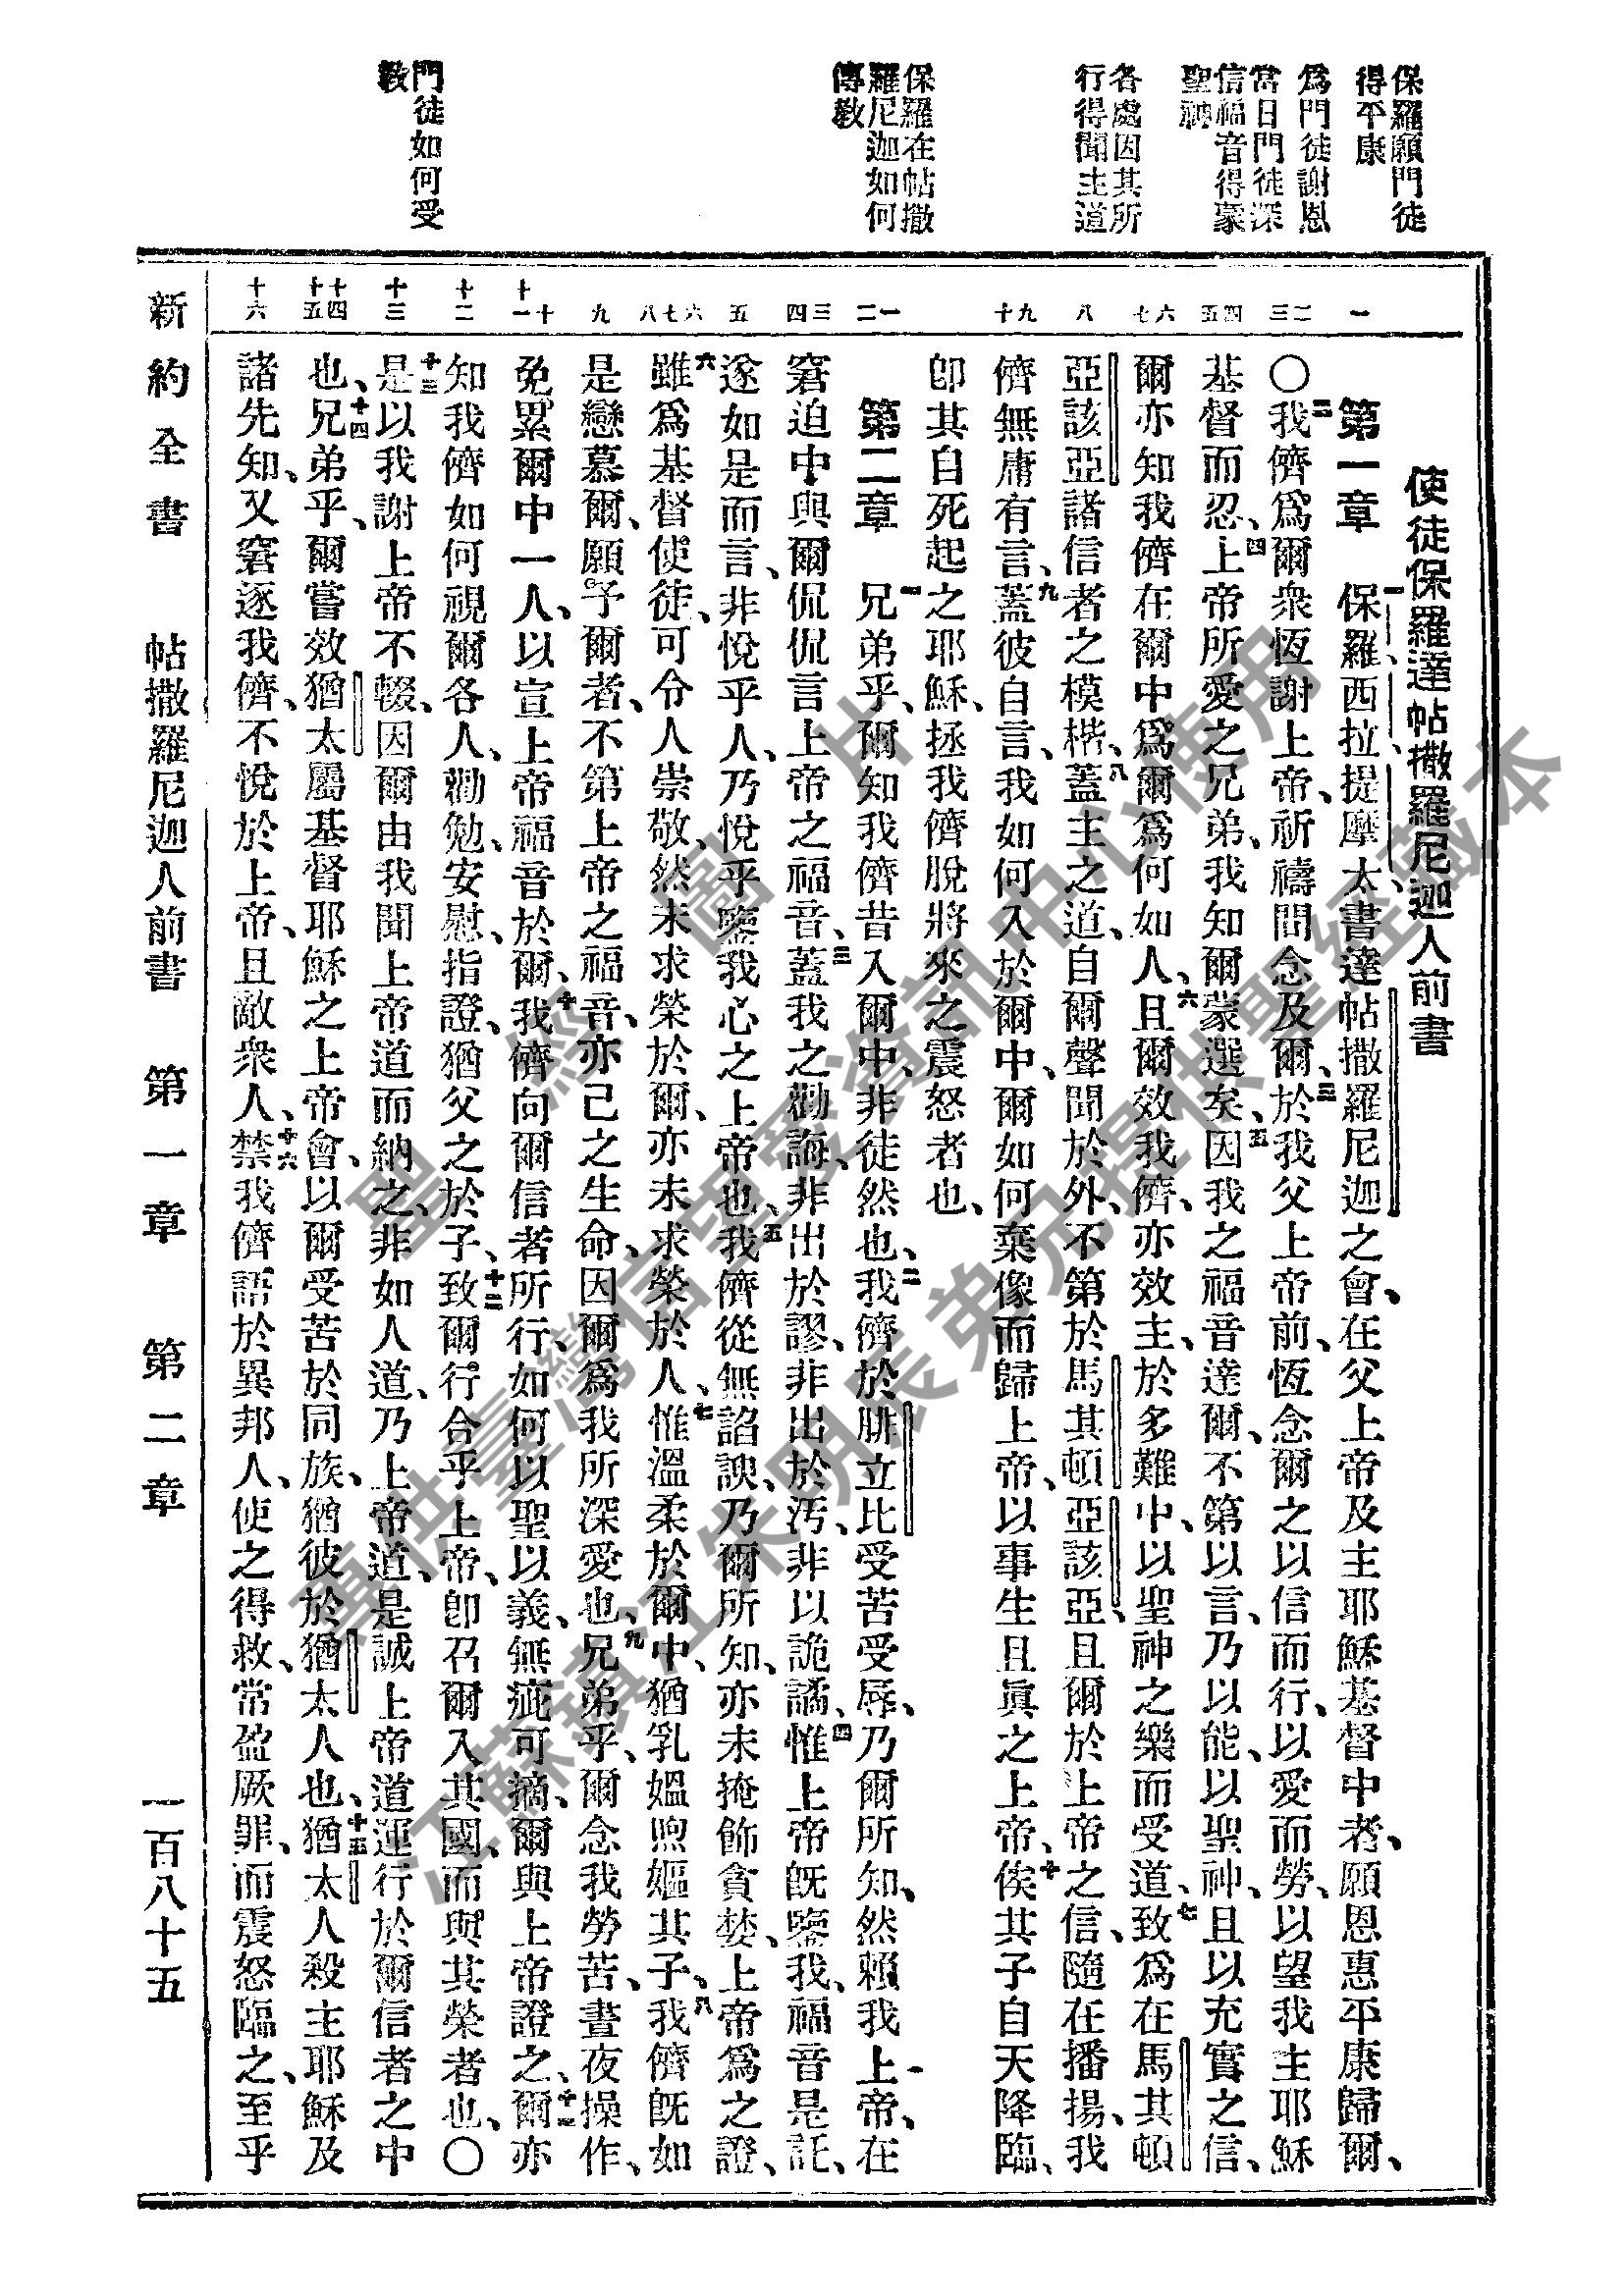 保羅願門徒
得平康
爲門徒謝恩
當日門徒深
信福音得蒙
聖神
各處因其所
行得聞主道
保羅在帖撒
羅尼迦如何
傳教
門徒如何受
教
使徒保羅達帖撒羅尼迦人前書
一
第一章 一保羅、西拉、提摩太、書達帖撒羅尼迦之會、在父上帝及主耶穌基督中者、願恩惠平康歸爾、
二三
○二我儕爲爾衆恆謝上帝、祈禱間念及爾、三於我父上帝前、恆念爾之以信而行、以愛而勞、以望我主耶穌
四五
基督而忍、四上帝所愛之兄弟、我知爾蒙選矣、五因我之福音達爾、不第以言、乃以能、以聖神、且以充實之信、
六七
爾亦知我儕在爾中爲爾爲何如人、六且爾效我儕、亦效主、於多難中、以聖神之樂而受道、七致爲在馬其頓
八
亞該亞諸信者之模楷、八蓋主之道、自爾聲聞於外、不第於馬其頓亞該亞、且爾於上帝之信、隨在播揚、我
九十
儕無庸有言、九蓋彼自言、我如何入於爾中、爾如何棄像而歸上帝、以事生且眞之上帝、十俟其子自天降臨、
卽其自死起之耶穌、拯我儕脫將來之震怒者也、
一二
第二章 一兄弟乎、爾知我儕昔入爾中、非徒然也、二我儕於腓立比受苦受辱、乃爾所知、然賴我上帝、在
三四
窘迫中與爾侃侃言上帝之福音、三蓋我之勸誨、非出於謬、非出於汚、非以詭譎、四惟上帝旣鑒我、福音是託、
五
遂如是而言、非悅乎人、乃悅乎鑒我心之上帝也、五我儕從無諂諛、乃爾所知、亦未掩飾貪婪、上帝爲之證、
六七八
六雖爲基督使徒、可令人崇敬、然未求榮於爾、亦未求榮於人、七惟溫柔於爾中、猶乳媼煦嫗其子、八我儕旣如
九
是戀慕爾、願予爾者、不第上帝之福音、亦己之生命、因爾爲我所深愛也、九兄弟乎、爾念我勞苦、晝夜操作、
十十一
免累爾中一人、以宣上帝福音於爾、十我儕向爾信者所行、如何以聖以義、無疵可摘、爾與上帝證之、十一爾亦
十二
知我儕如何視爾各人、勸勉、安慰、指證、猶父之於子、十二致爾行合乎上帝、卽召爾入其國、而與其榮者也、○
十三
十三是以我謝上帝不輟、因爾由我聞上帝道而納之、非如人道、乃上帝道、是誠上帝道、運行於爾信者之中
十四十五
也、十四兄弟乎、爾嘗效猶太屬基督耶穌之上帝會、以爾受苦於同族、猶彼於猶太人也、十五猶太人殺主耶穌及
十六
諸先知、又窘逐我儕、不悅於上帝、且敵衆人、十六禁我儕語於異邦人、使之得救、常盈厥罪、而震怒臨之、至乎
新約全書 帖撒羅尼迦人前書 第一章 第二章 一百八十五
聖經圖片
專供臺灣信望愛資訊中心使用
江蘇鎮江朱明辰弟兄提供聖經藏本